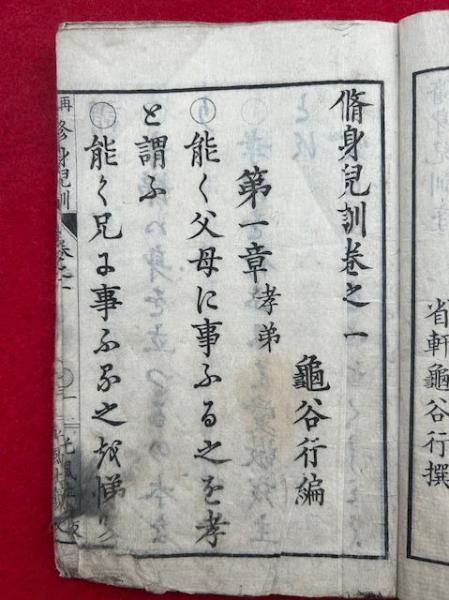 省軒龜谷行撰
脩身兒訓卷之一
龜谷行編
第一章 孝弟
○能く父母に事ふる之を孝
と謂ふ
○能く兄に事ふる之を悌
再 修身兒訓 卷之一